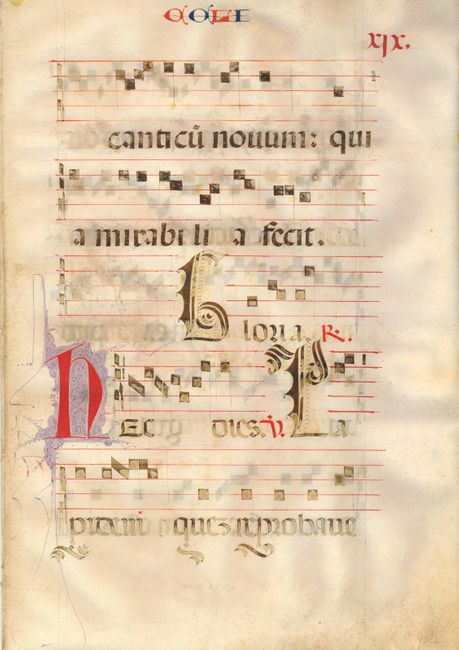 xjx.
canticũ nouum: qui
a mirabili a fecit.
Gloria. R.
hEC dies. V. La
pidem ques reprobaue